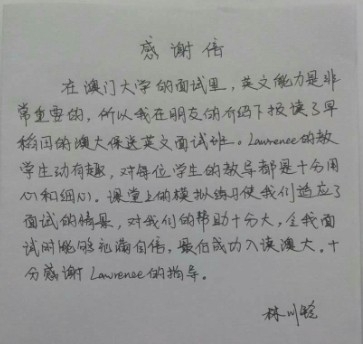 感谢信
在澳门大学的面试里，英文能力是非
常重要的，所以我在朋友的介绍下报读了早
稻田的澳大保送英文面试班。Lawrence的教
学生动有趣，对每位学生的教导都是十分用
心和细心。课堂上的模拟练习使我们适应了
面试的情景，对我们的帮助十分大，令我面
试时能够充满自信，最后成功入读澳大。十
分感谢Lawrence的指导。
林川